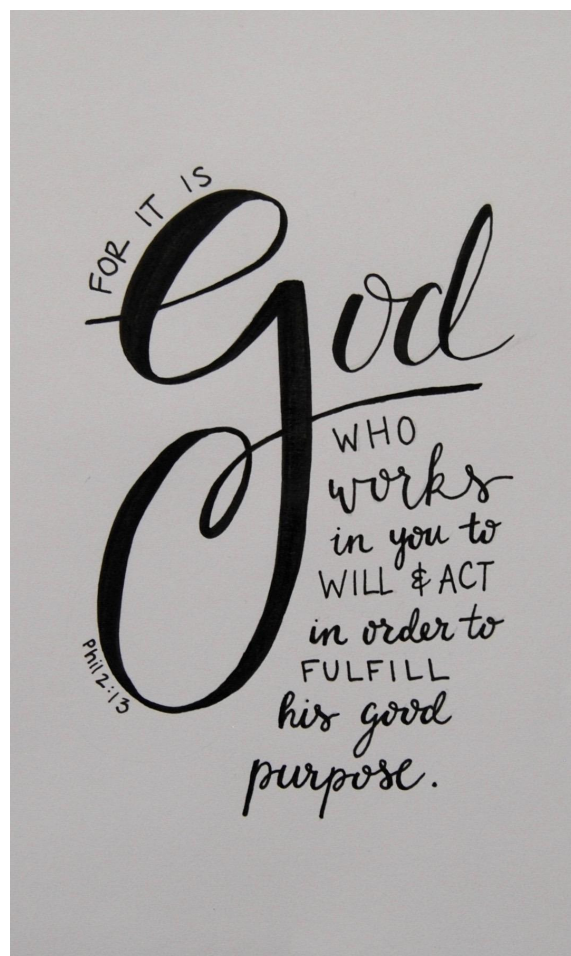 FOR IT IS
God
WHO
works
in you to
WILL & ACT
in order to
FULFILL
his good
purpose.
Phil 2:13